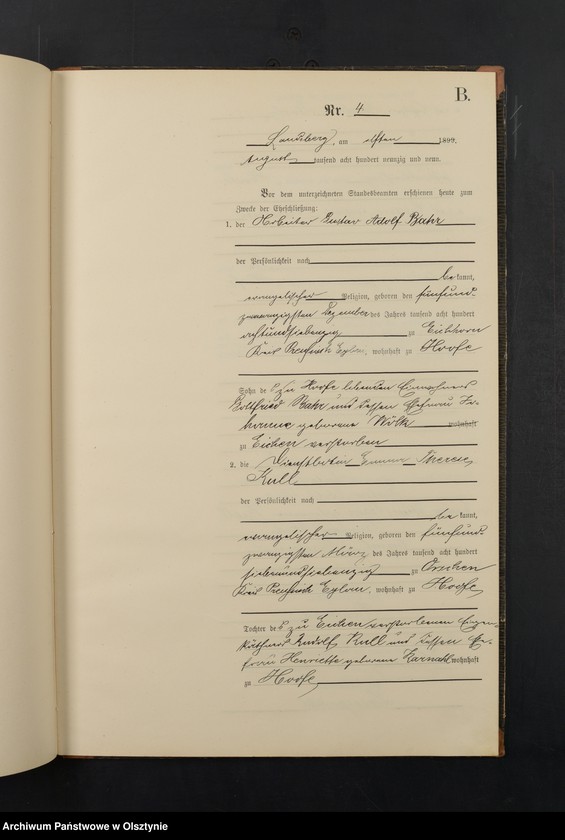 B.
Nr. 4
Landsberg, am elften 1899.
August tausend acht hundert neunzig und neun.
Vor dem unterzeichneten Standesbeamten erschienen heute zum
Zwecke der Eheschließung:
1. der Arbeiter Gustav Adolf Bahr
der Persönlichkeit nach
be kannt,
evangelischer Religion, geboren den fünfund-
zwanzigsten Dezember des Jahres tausend acht hundert
achtundsiebenzig zu Eichhorn
Kreis Preußisch Eylau, wohnhaft zu Hoofe
Sohn des zu Hoofe lebenden Einwohners
Gottfried Bahr und dessen Ehefrau Jo-
hanne geborene wohnhaft
zu Eichen verstorben
2. die Dienstbotin Emma Therese
Kull
der Persönlichkeit nach
be kannt,
evangelischer Religion, geboren den fünfund-
zwanzigsten März des Jahres tausend acht hundert
siebenundsiebenzig zu
Kreis Preußisch Eylau, wohnhaft zu Hoofe
Tochter des zu Eichen verstorbenen Eigen-
käthners Rudolf Kull und dessen Ehe-
frau Henriette geborene wohnhaft
zu Hoofe
Archiwum Państwowe w Olsztynie